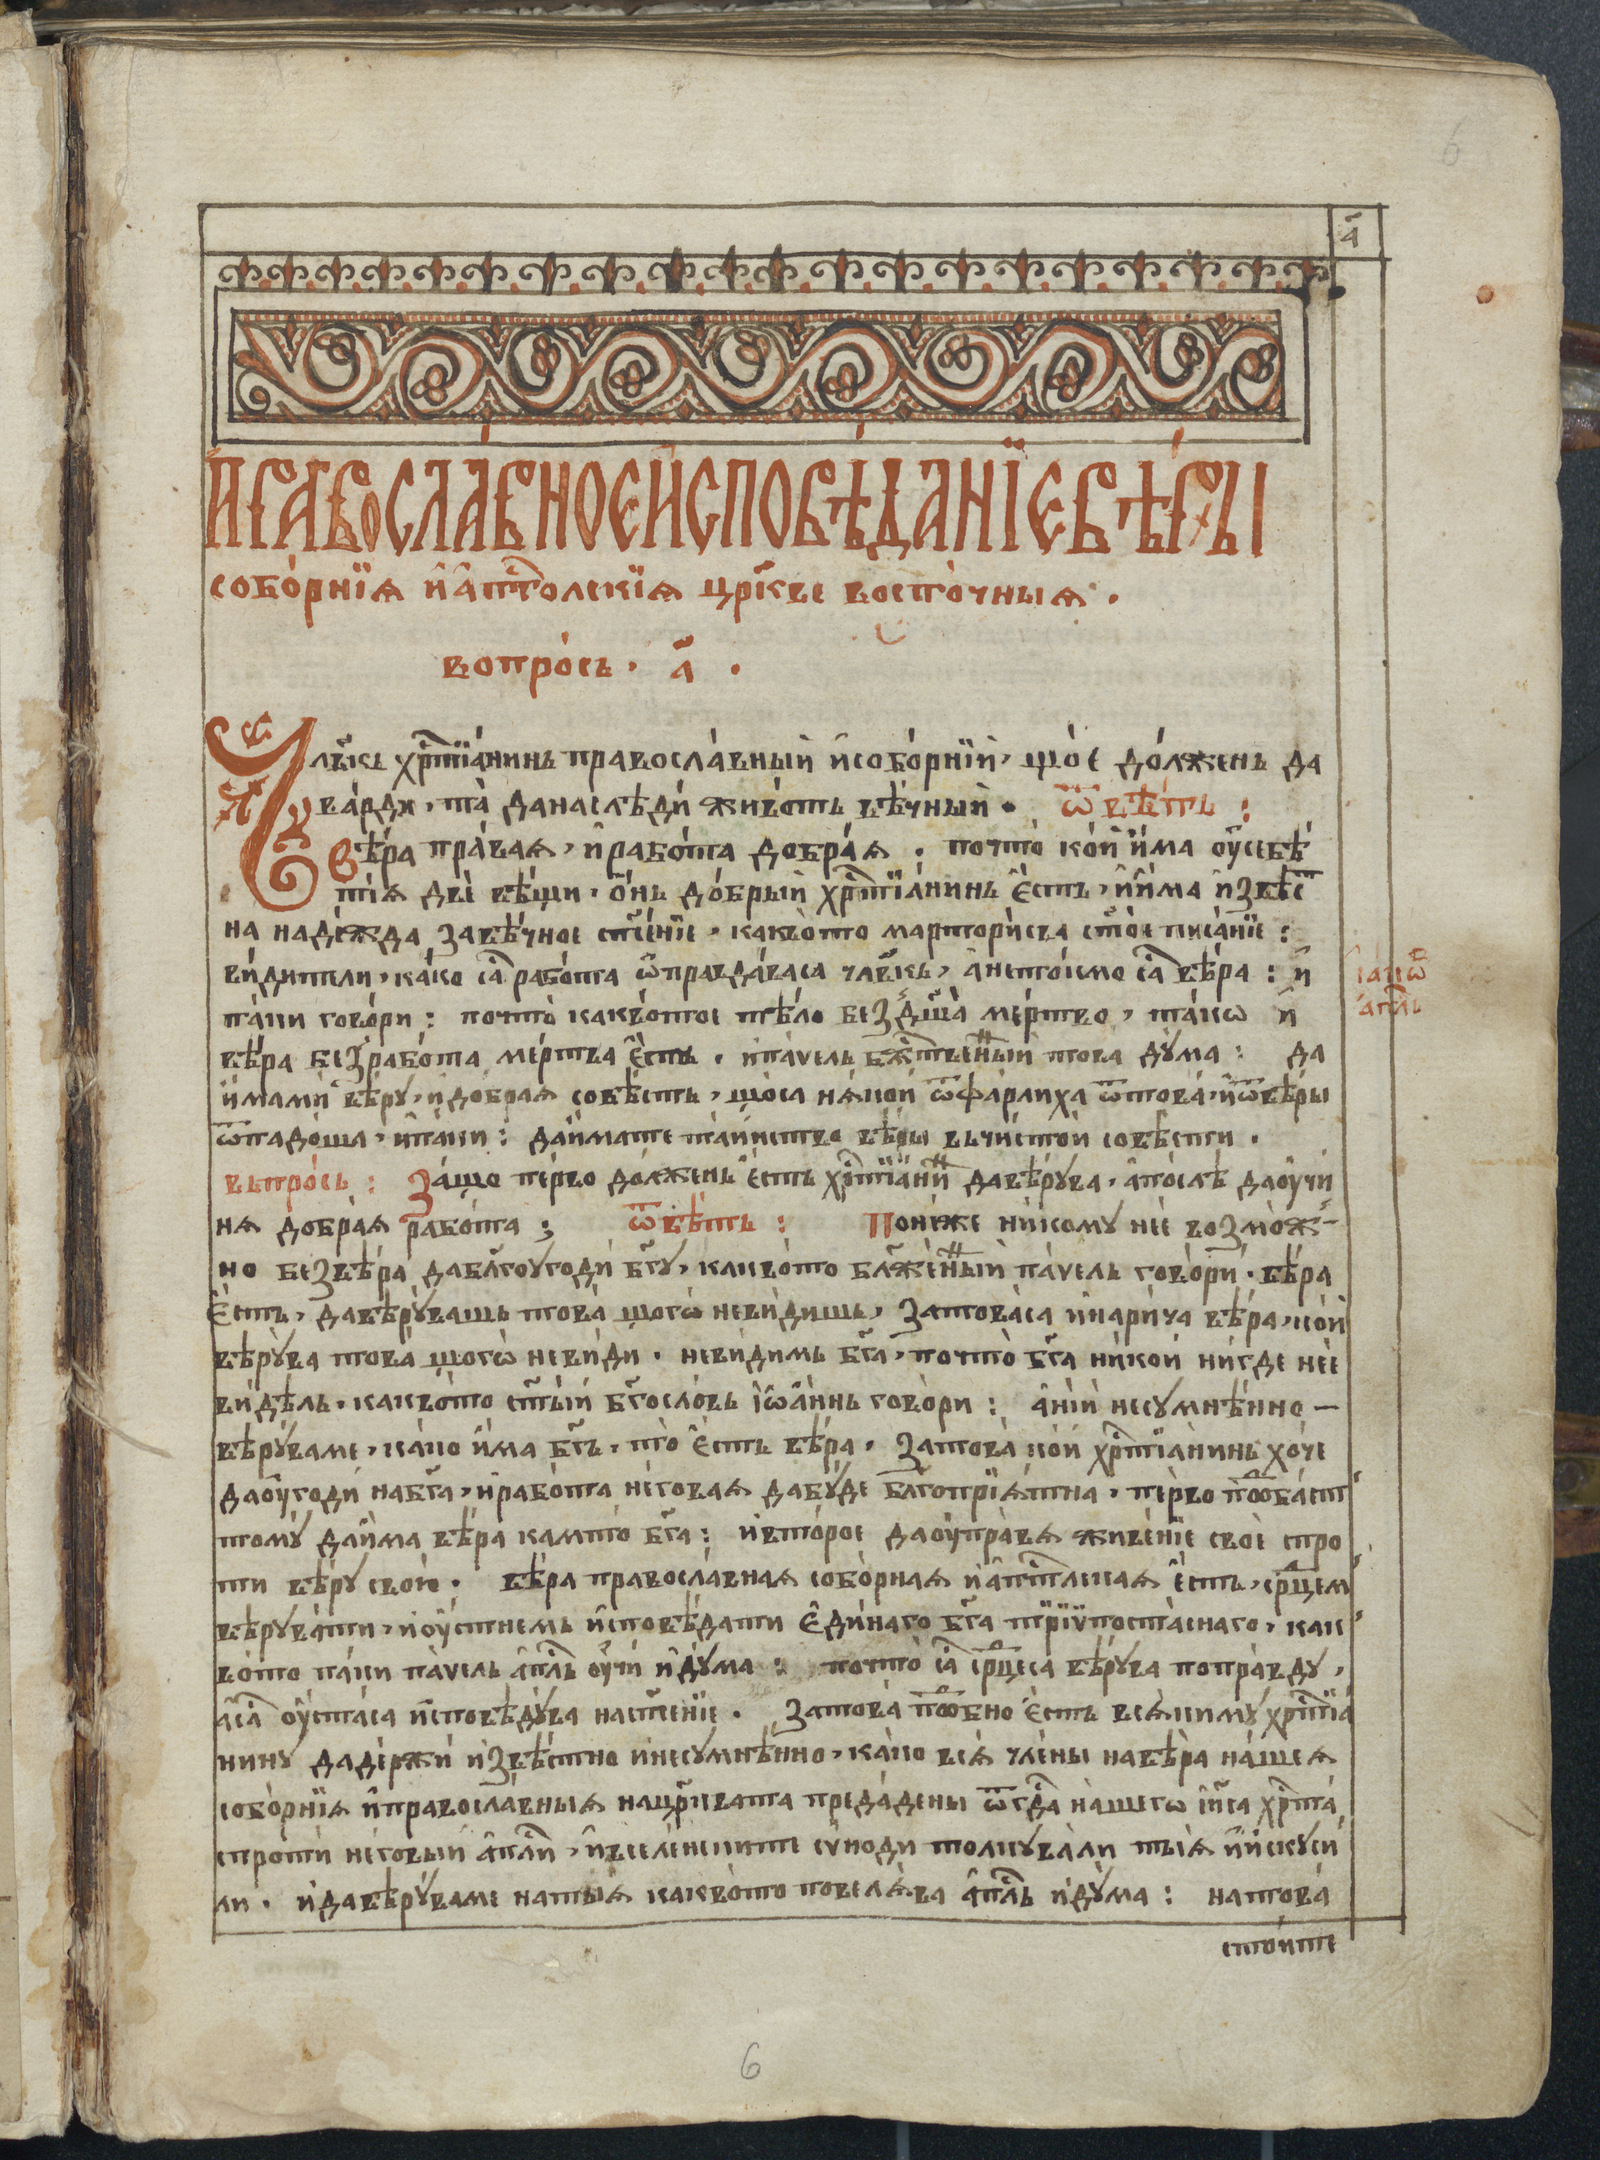 6
а҃
ПРАВОСЛАВНОЕ ИСПОВѢДАНЇЕ ВѢРЫ
собо́рнїѧ и҆ а҆пⷭ҇толскїѧ цр҃кве восто́чныѧ .
вопро́сь . а҃ .
Чл҃вѣкь хрⷭ҇тїа́нинь правосла́вный и҆ собо́рнїй, що̀ є до́лжень да
ва́рди, та̀ да наслѣ́ди живо́ть вѣ́чный . ѿвѣ́ть :
вѣ́ра пра́ваѧ, и҆ рабо́та до́браѧ . почто̀ ко́й и҆́ма оу҆ себѣ́
тїѧ двѐ вѣ́щи, ѻ҆́нь до́брый хрⷭ҇тїа́нинь є҆́сть, и҆ и҆́ма и҆звѣ́с
на наде́жда за вѣ́чное сп҃се́нїе, какво̀то марторисва ст҃о́е писа́нїе :
ви́дители, ка́ко са рабо́та ѡ҆правда́васа чл҃вѣкь, а҆ не то́кмо са вѣ́ра : и҆
па́ки гово́ри : почто̀ какво́тое тѣ́ло без̾ дш҃а̀ ме́ртво, та́кѡ и҆
вѣ́ра без̾ рабо́та ме́ртва є҆́сть . и҆ па́vель бжⷭ҇твенный това ду́ма : да
и҆́мамы вѣ́ру, и҆ до́браѧ со́вѣсть, що̀са нѧ́кои ѿфарлиха ѿ това̀, и҆ ѿ вѣ́ры
ѿпадо́ша, и҆ па́ки : да и҆́мате та́инство вѣ́ры вь чи́стой со́вѣсти .
выпро́сь : За́що пе́рво до́лжень є҆́сть хрⷭ҇тїа́нинъ да вѣ́рува, а҆ по́слѣ да оу҆чи́
нѧ до́браѧ рабо́та ; ѿвѣ́ть : Поне́же ни́кому не́е возмо́ж-
но без̾ вѣ́ра да бл҃гоугоди́ бг҃у, какво̀то бл҃же́нный па́vель гово́ри . вѣ́ра
є҆́сть, да вѣ́рувашь това̀ щогѡ̀ не ви́дишь, затова̀са и҆ нари́ча вѣ́ра, ко́й
вѣ́рува това̀ щогѡ̀ не ви́ди . не ви́димь бг҃а, почто̀ бг҃а ни́кой ни́где не́е
ви́дѣль . какво̀то ст҃ы́й бг҃осло́вь і҆ѡа́ннь гово́ри : а҆ ні́й несумнѣ́нно -
вѣ́руваме, ка́ко и҆́ма бг҃ъ, то̀ є҆́сть вѣ́ра . затова̀ ко́й хрⷭ҇тїа́нинь хо́че
да оу҆годи́ на бг҃а, и҆ рабо́та не́говаѧ да бу́де бл҃гопрїѧ́тна, пе́рво подоба́ет
тому̀ да и҆́ма вѣ́ра камто бг҃а : и҆ вто́рое да оу҆пра́вѧ живе́нїе своѐ спро
ти вѣ́ру свою̀ . вѣ́ра правосла́внаѧ собо́рнаѧ и҆ а҆пⷭ҇толскаѧ є҆́сть, ср҃цем
вѣ́рувати, и҆ оу҆стнемь и҆сповѣ́дати є҆ди́наго бг҃а трїѵпоста́снаго, как
во̀то па́ки па́vель а҆пⷭ҇ль оу҆чи́ и҆ ду́ма : почто̀ са ср҃цеса вѣ́рува попра́вду,
а҆ са оу҆ста́са и҆сповѣ́дува на сп҃се́нїе . затова̀ подо́бно є҆́сть всѧ́кому хрⷭ҇тїа
нину да держи́ и҆звѣ́стно и҆ несумнѣ́нно, ка́ко всѧ̀ чле́ны на вѣ́ра на́шеѧ
собо́рнїѧ и҆ правосла́вныѧ на цр҃квата преда́дены ѿ гдⷭ҇а на́шегѡ і҆и҃са хрⷭ҇та̀
спроти не́говый а҆пⷭ҇ли, и҆ вселенскїите сѵноди толкува́ли тыѧ и҆ и҆ску́си
ли . и҆ да вѣ́руваме на тыѧ какво̀то повелѧ́ва а҆пⷭ҇ль и҆ ду́ма : на това̀
стои́те
і҆а́кѡв
а҆пⷭ҇ль
6